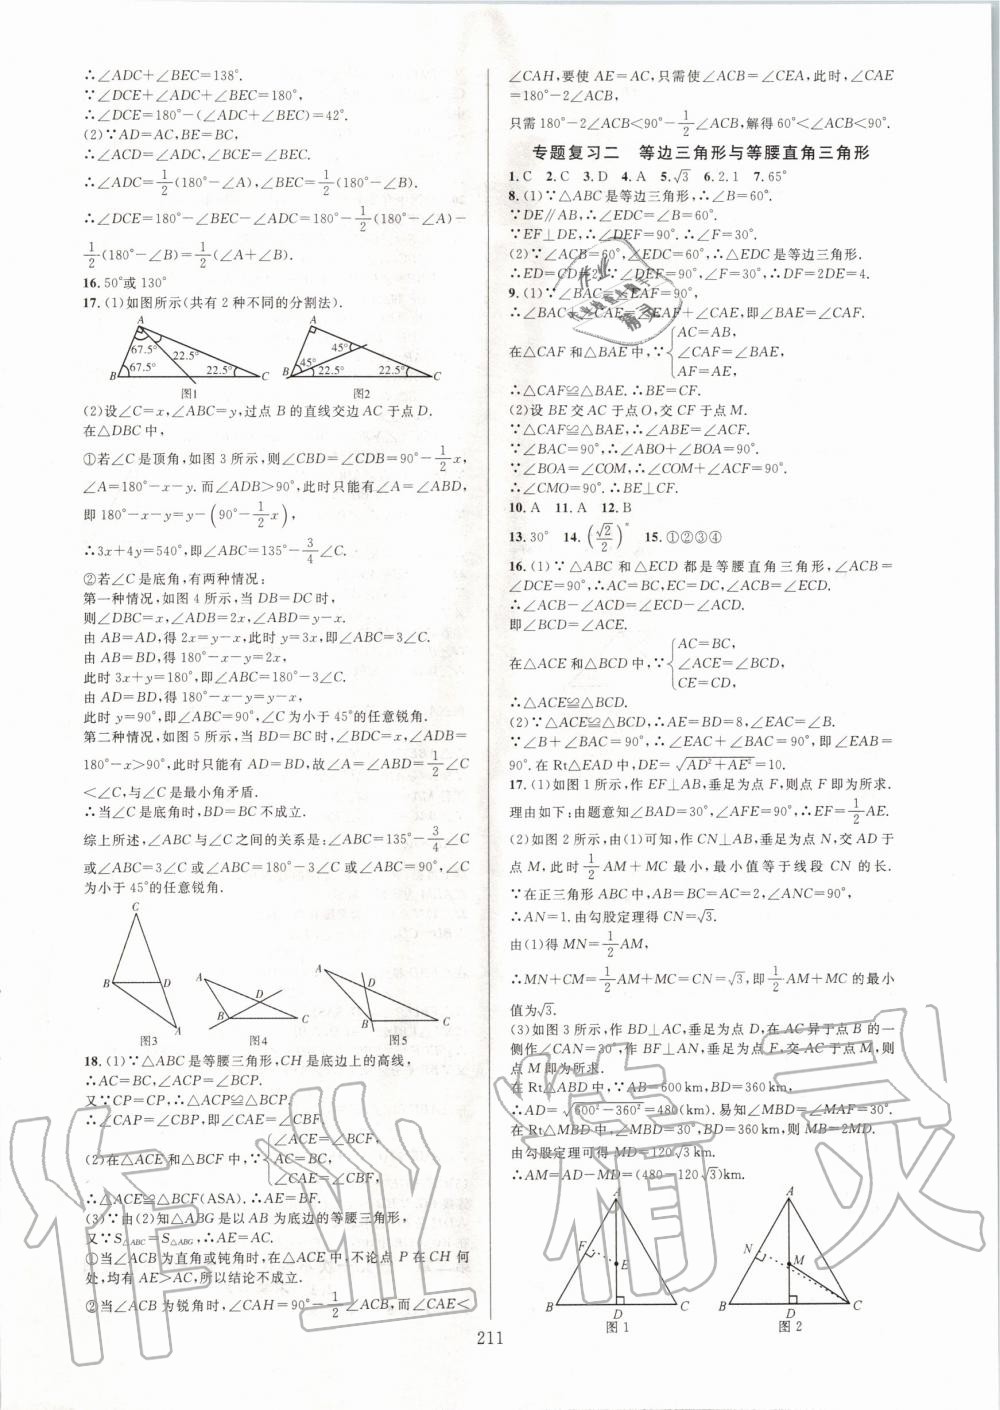 ∴∠ADC+∠BEC=138°.
∵∠DCE+∠ADC+∠BEC=180°,
∴∠DCE=180°-(∠ADC+∠BEC)=42°.
(2)∵AD=AC,BE=BC,
∴∠ACD=∠ADC,∠BCE=∠BEC.
∴∠ADC=1/2(180°-∠A),∠BEC=1/2(180°-∠B).
∴∠DCE=180°-∠BEC-∠ADC=180°-1/2(180°-∠A)-
1/2(180°-∠B)=1/2(∠A+∠B).
16.50°或130°
17.(1)如图所示(共有2种不同的分割法).
A
67.5°
22.5°
67.5°
22.5°
B
C
图1
A
45°
45°
22.5°
22.5°
B
C
图2
(2)设∠C=x,∠ABC=y,过点B的直线交边AC于点D.
在△DBC中,
①若∠C是顶角,如图3所示,则∠CBD=∠CDB=90°-1/2x,
∠A=180°-x-y.而∠ADB>90°,此时只能有∠A=∠ABD,
即180°-x-y=y-(90°-1/2x),
∴3x+4y=540°,即∠ABC=135°-3/4∠C.
②若∠C是底角,有两种情况:
第一种情况,如图4所示,当DB=DC时,
则∠DBC=x,∠ADB=2x,∠ABD=y-x.
由AB=AD,得2x=y-x,此时y=3x,即∠ABC=3∠C.
由AB=BD,得180°-x-y=2x,
此时3x+y=180°,即∠ABC=180°-3∠C.
由AD=BD,得180°-x-y=y-x,
此时y=90°,即∠ABC=90°,∠C为小于45°的任意锐角.
第二种情况,如图5所示,当BD=BC时,∠BDC=x,∠ADB=
180°-x>90°,此时只能有AD=BD,故∠A=∠ABD=1/2∠C
<∠C,与∠C是最小角矛盾.
∴当∠C是底角时,BD=BC不成立.
综上所述,∠ABC与∠C之间的关系是:∠ABC=135°-3/4∠C
或∠ABC=3∠C或∠ABC=180°-3∠C或∠ABC=90°,∠C
为小于45°的任意锐角.
C
B
D
A
图3
A
D
B
C
图4
A
D
B
C
图5
18.(1)∵△ABC是等腰三角形,CH是底边上的高线,
∴AC=BC,∠ACP=∠BCP.
又∵CP=CP,∴△ACP≌△BCP.
∴∠CAP=∠CBP,即∠CAE=∠CBF.
(2)在△ACE和△BCF中,∵{∠ACE=∠BCF,
AC=BC,
∠CAE=∠CBF,
∴△ACE≌△BCF(ASA).∴AE=BF.
(3)∵由(2)知△ABG是以AB为底边的等腰三角形,
又∵S△ABC=S△ABG,∴AE=AC.
①当∠ACB为直角或钝角时,在△ACE中,不论点P在CH何
处,均有AE>AC,所以结论不成立.
②当∠ACB为锐角时,∠CAH=90°-1/2∠ACB,而∠CAE<
∠CAH,要使AE=AC,只需使∠ACB=∠CEA,此时,∠CAE
=180°-2∠ACB,
只需180°-2∠ACB<90°-1/2∠ACB,解得60°<∠ACB<90°.
专题复习二 等边三角形与等腰直角三角形
1.C 2.C 3.D 4.A 5.√3 6.2,1 7.65°
8.(1)∵△ABC是等边三角形,∴∠B=60°.
∵DE∥AB,∴∠EDC=∠B=60°.
∵EF⊥DE,∴∠DEF=90°.∴∠F=30°.
(2)∵∠ACB=60°,∠EDC=60°,∴△EDC是等边三角形.
∴ED=CD=2.∵∠DEF=90°,∠F=30°,∴DF=2DE=4.
9.(1)∵∠BAC=∠EAF=90°,
∴∠BAC+∠CAE=∠EAF+∠CAE,即∠BAE=∠CAF.
在△CAF和△BAE中,∵{AC=AB,
∠CAF=∠BAE,
AF=AE,
∴△CAF≌△BAE.∴BE=CF.
(2)设BE交AC于点O,交CF于点M.
∵△CAF≌△BAE,∴∠ABE=∠ACF.
∵∠BAC=90°,∴∠ABO+∠BOA=90°.
∵∠BOA=∠COM,∴∠COM+∠ACF=90°.
∴∠CMO=90°.∴BE⊥CF.
10.A 11.A 12.B
13.30° 14.(√2/2)ⁿ 15.①②③④
16.(1)∵△ABC和△ECD都是等腰直角三角形,∠ACB=
∠DCE=90°,∴AC=BC,EC=DC,∠ACB=∠ECD.
∴∠ACB-∠ACD=∠ECD-∠ACD.
即∠BCD=∠ACE.
在△ACE和△BCD中,∵{AC=BC,
∠ACE=∠BCD,
CE=CD,
∴△ACE≌△BCD.
(2)∵△ACE≌△BCD,∴AE=BD=8,∠EAC=∠B.
∵∠B+∠BAC=90°,∴∠EAC+∠BAC=90°,即∠EAB=
90°.在Rt△EAD中,DE=√AD²+AE²=10.
17.(1)如图1所示,作EF⊥AB,垂足为点F,则点F即为所求.
理由如下:由题意知∠BAD=30°,∠AFE=90°,∴EF=1/2AE.
(2)如图2所示,由(1)可知,作CN⊥AB,垂足为点N,交AD于
点M,此时1/2AM+MC最小,最小值等于线段CN的长.
∵在正三角形ABC中,AB=BC=AC=2,∠ANC=90°,
∴AN=1.由勾股定理得CN=√3.
由(1)得MN=1/2AM,
∴MN+CM=1/2AM+MC=CN=√3,即1/2AM+MC的最小
值为√3.
(3)如图3所示,作BD⊥AC,垂足为点D,在AC异于点B的一
侧作∠CAN=30°,作BF⊥AN,垂足为点F,交AC于点M,则
点M即为所求.
在Rt△ABD中,∵AB=600km,BD=360km,
∴AD=√600²-360²=480(km).易知∠MBD=∠MAF=30°.
在Rt△MBD中,∠MBD=30°,BD=360km,则MB=2MD.
由勾股定理可得MD=120√3km.
∴AM=AD-MD=(480-120√3)km.
A
F
E
B
D
C
图1
A
N
M
B
D
C
图2
211
作业精灵